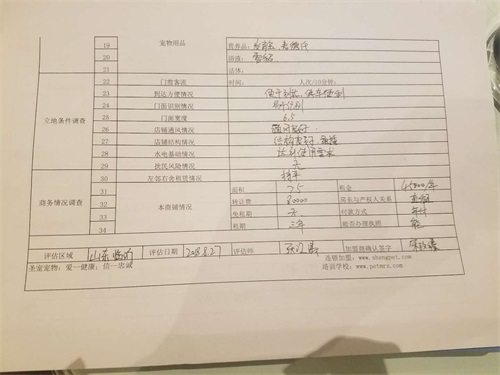 19 宠物用品 营养品:
20 溶液:
21 活体:
立地条件调查
22 门前客流 时间: 人次/10分钟:
23 到达方便情况 便于到达、停车便利
24 门面识别情况 易于识别
25 门面宽度 6.5
26 店铺通风情况 通风良好
27 店铺结构情况 结构良好
28 水电基础情况 达到使用要求
29 扰民风险情况 无
30 左邻右舍租赁情况 持平
商务情况调查
31 本商铺情况 面积 75 租金 45000/年
32 转让费 80000 房东与产权人关系
33 免租期 无 付款方式 年付
34 租期 三年 能否办理执照 能
评估区域 山东 评估日期 2018.8.27 评估师 加盟商确认签字
圣宠宠物:爱—健康;信—忠诚 连锁加盟:www.shengpet.com
培训学校:www.petmra.com